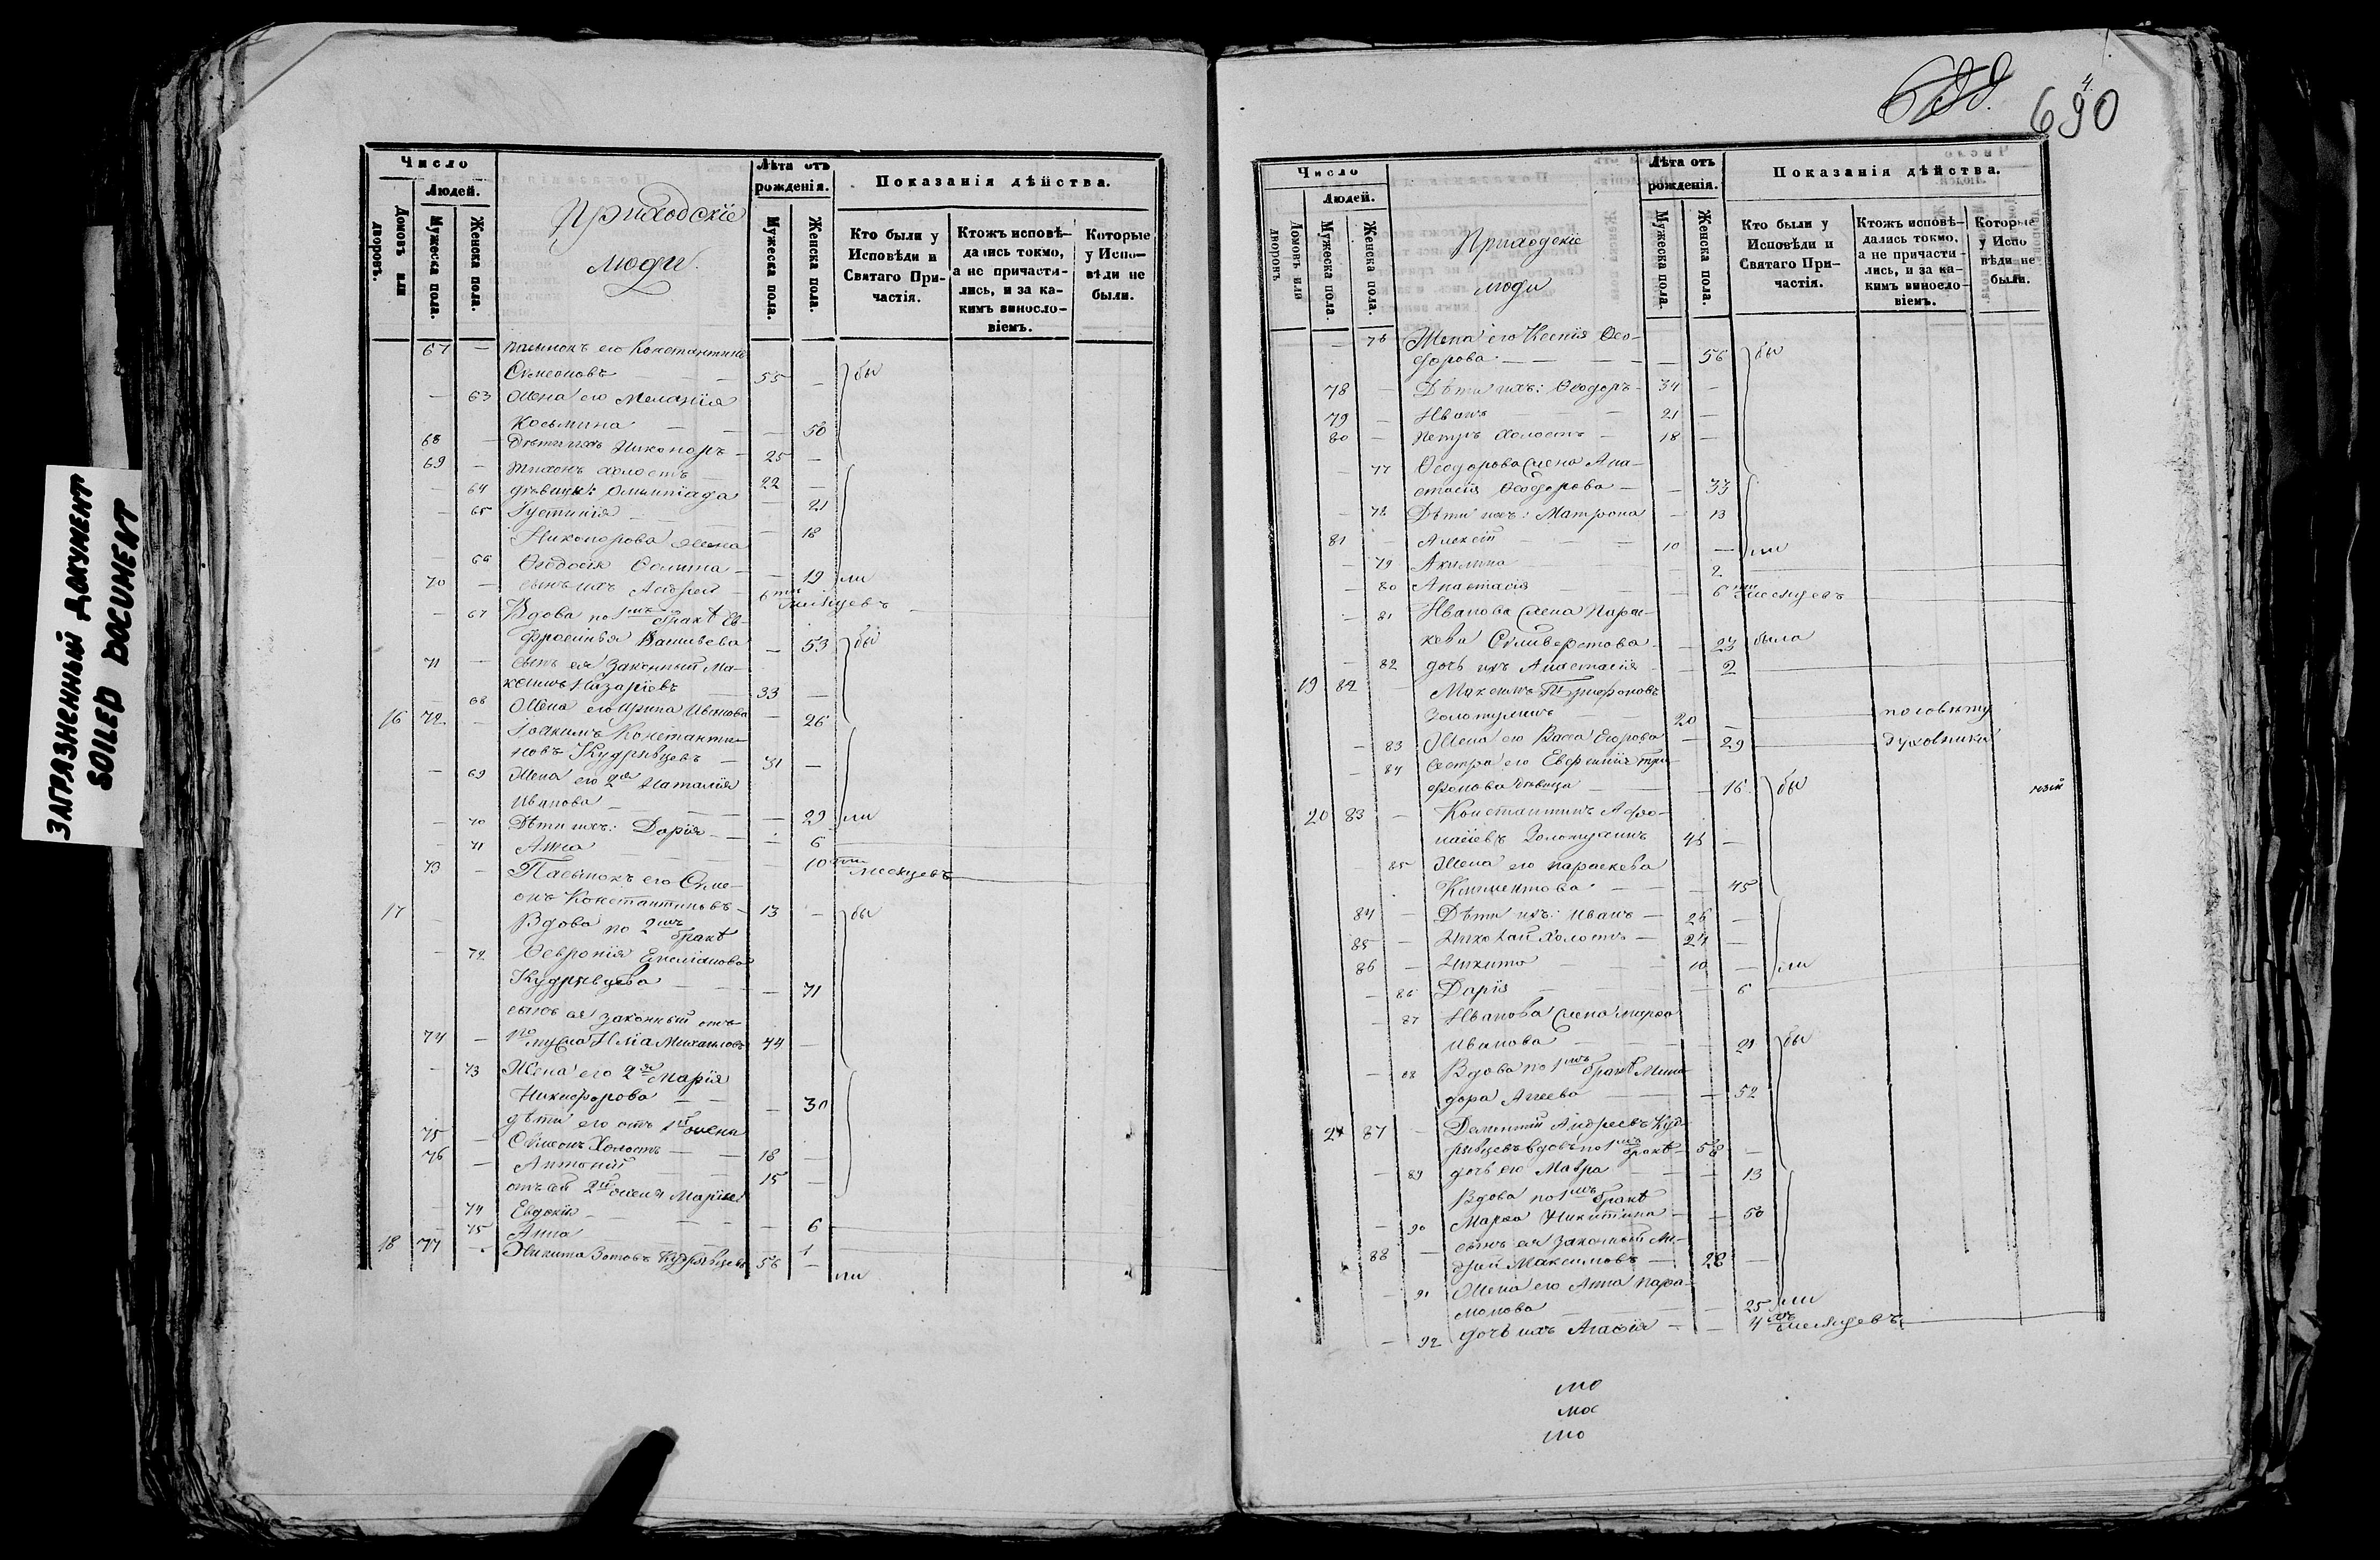 ЗАГРАЗНЕННЫЙ ДОКУМЕНТ
SOILED DOCUMENT
Число
Людей.
Домовъ или дворовъ.
Мужеска пола.
Женска пола.
Приходскіе
люди.
Лѣта отъ рожденія.
Мужеска пола.
Женска пола.
Показанія дѣйства.
Кто были у Исповѣди и Святаго Причастія.
Ктожъ исповѣдались токмо, а не причастились, и за какимъ винословіемъ.
Которые у Исповѣди не были.
67 — пасынокъ его Константинъ
Симеоновъ — — 55 — бы
— 63 Жена его Меланія
Косьмина — — — 50
68 — Дѣти ихъ Никоноръ — 25 —
69 — Тихонъ холостъ — 22 —
— 64 дѣвицы: Олимпіада — 21
— 65 Іустинія — 18
Никонорова жена
— 66 Ѳеодосія Ѳомина — — 19 ли
70 — сынъ ихъ Андрей — 6ти мѣсяцевъ
— 67 Вдова по 1мъ бракѣ Ев-
фросинья Ватьева — 53 бы
71 — сынъ ея законный Ма-
ксимъ Назаріевъ — 33 —
— 68 Жена его Ирина Иванова — 26
16 72 — Іоакимъ Константи-
новъ Кудрявцевъ — 31 —
— 69 Жена его 2я Наталія
Иванова — — 29 ли
— 70 Дѣти ихъ: Дарія — — 6
— 71 Анна — 10ти мѣсяцевъ
73 — Пасынокъ его Симе-
онъ Константиновъ — 13 — бы
17 — Вдова по 2мъ бракѣ
— 72 Ѳевронія Емеліанова
Кудрявцева — — — 71
сынъ ея законный отъ
74 — Илія Михаиловъ 44 —
— 73 Жена его 2я Марія
Никифорова — — — 30
дѣти его отъ 1й жены
75 — Симеонъ Холостъ — 18 —
76 — Антоній — 15 —
отъ сей 2й жены Маріи
— 74 Евдокія — — — 6
— 75 Анна — 1
18 77 — Никита Зотовъ Кудрявцевъ 56 — ли
4.
690
Число
Людей.
Домовъ или дворовъ
Мужеска пола.
Женска пола.
Приходскіе
люди
Лѣта отъ рожденія.
Мужеска пола.
Женска пола.
Показанія дѣйства.
Кто были у Исповѣди и Святаго Причастія.
Ктожъ исповѣдались токмо, а не причастились, и за какимъ винословіемъ.
Которые у Исповѣди не были.
— 76 Жена его Ксенія Ѳео-
дорова — — — 56 бы
78 — Дѣти ихъ: Ѳеодоръ — 34 —
79 — Иванъ — — 21 —
80 — Петръ холостъ — 18 —
— 77 Ѳеодорова жена Ана-
стасія Ѳеодорова — — 33
— 78 Дѣти ихъ: Матрона — 13
81 — Алексій — — — 10 — ли
— 79 Акилина 2
— 80 Анастасія — — 6ти мѣсяцевъ
— 81 Иванова жена Парас-
кева Селиверстова — 23 была
— 82 дочь ихъ Анастасія — 2
19 82 — Максимъ Трифоновъ
Золотухинъ — — 20 — по совѣту
— 83 Жена его Васса Егорова — 29 духовника
— 84 Сестра его Евфимія Три-
фонова дѣвица — — 16 бы
20 83 — Константинъ Афо-
насіевъ Золотухинъ 45 —
— 85 Жена его Параскева
Климентова — — — 45
84 — Дѣти ихъ: Иванъ — 26 —
85 — Николай Холостъ — 21 —
86 — Никита — 10 — ли
— 86 Дарія — 6
— 87 Иванова жена Марѳа
Иванова — 21 бы
— 88 Вдова по 1мъ бракѣ Мина-
дора Агеева — 52
21 87 — Дементій Андреевъ Куд-
рявцевъ вдовъ по 1мъ бракѣ — 58 —
— 89 дочь его Мавра — — 13
Вдова по 1мъ бракѣ
— 90 Марѳа Никитина — — 50
88 — сынъ ея законный Ан-
дрей Максимовъ — 28 —
— 91 Жена его Анна Пара-
монова — — — 25 ли
— 92 дочь ихъ Агафія — — 4хъ мѣсяцевъ